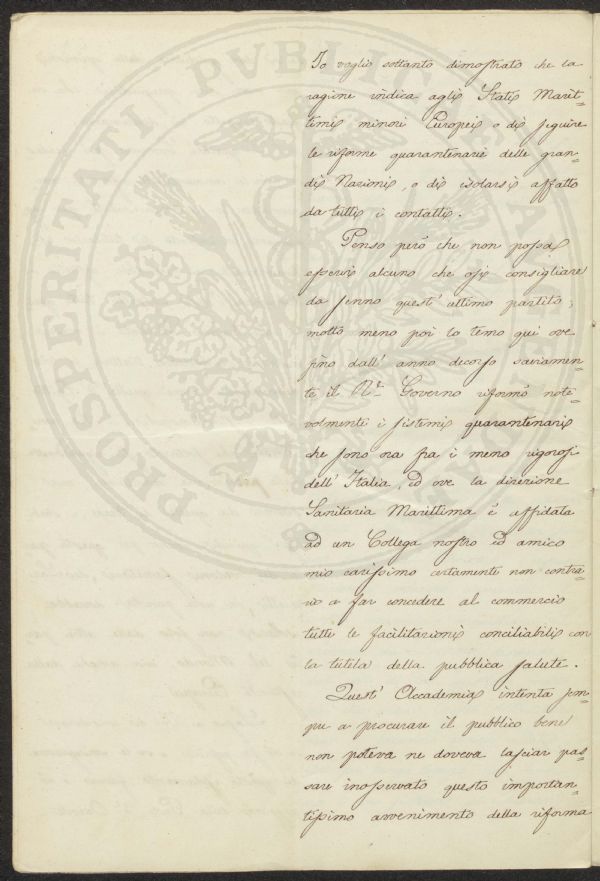 Io voglio soltanto dimostrato che la
ragione indica agli Stati Marit=
timi minori Europei o di seguire
le riforme quarantenarie delle gran=
di Nazioni, o di isolarsi affatto
da tutti i contatti.
Penso però che non possa
esservi alcuno che osi consigliare
da senno quest' ultimo partito;
molto meno poi lo temo qui ove
fino dall' anno decorso saviamen=
te il R. Governo riformò note=
volmente i sistemi quarantenari
che sono ora fra i meno rigorosi
dell' Italia, ed ove la direzione
Sanitaria Marittima è affidata
ad un Collega nostro ed amico
mio carissimo certamente non contra=
rio a far concedere al commercio
tutte le facilitazioni conciliabili con
la tutela della pubblica salute.
Quest' Accademia intenta sem=
pre a procurare il pubblico bene
non poteva ne doveva lasciar pas=
sare inosservato questo importan=
tissimo avvenimento della riforma
PROSPERITATI PVBLICAE